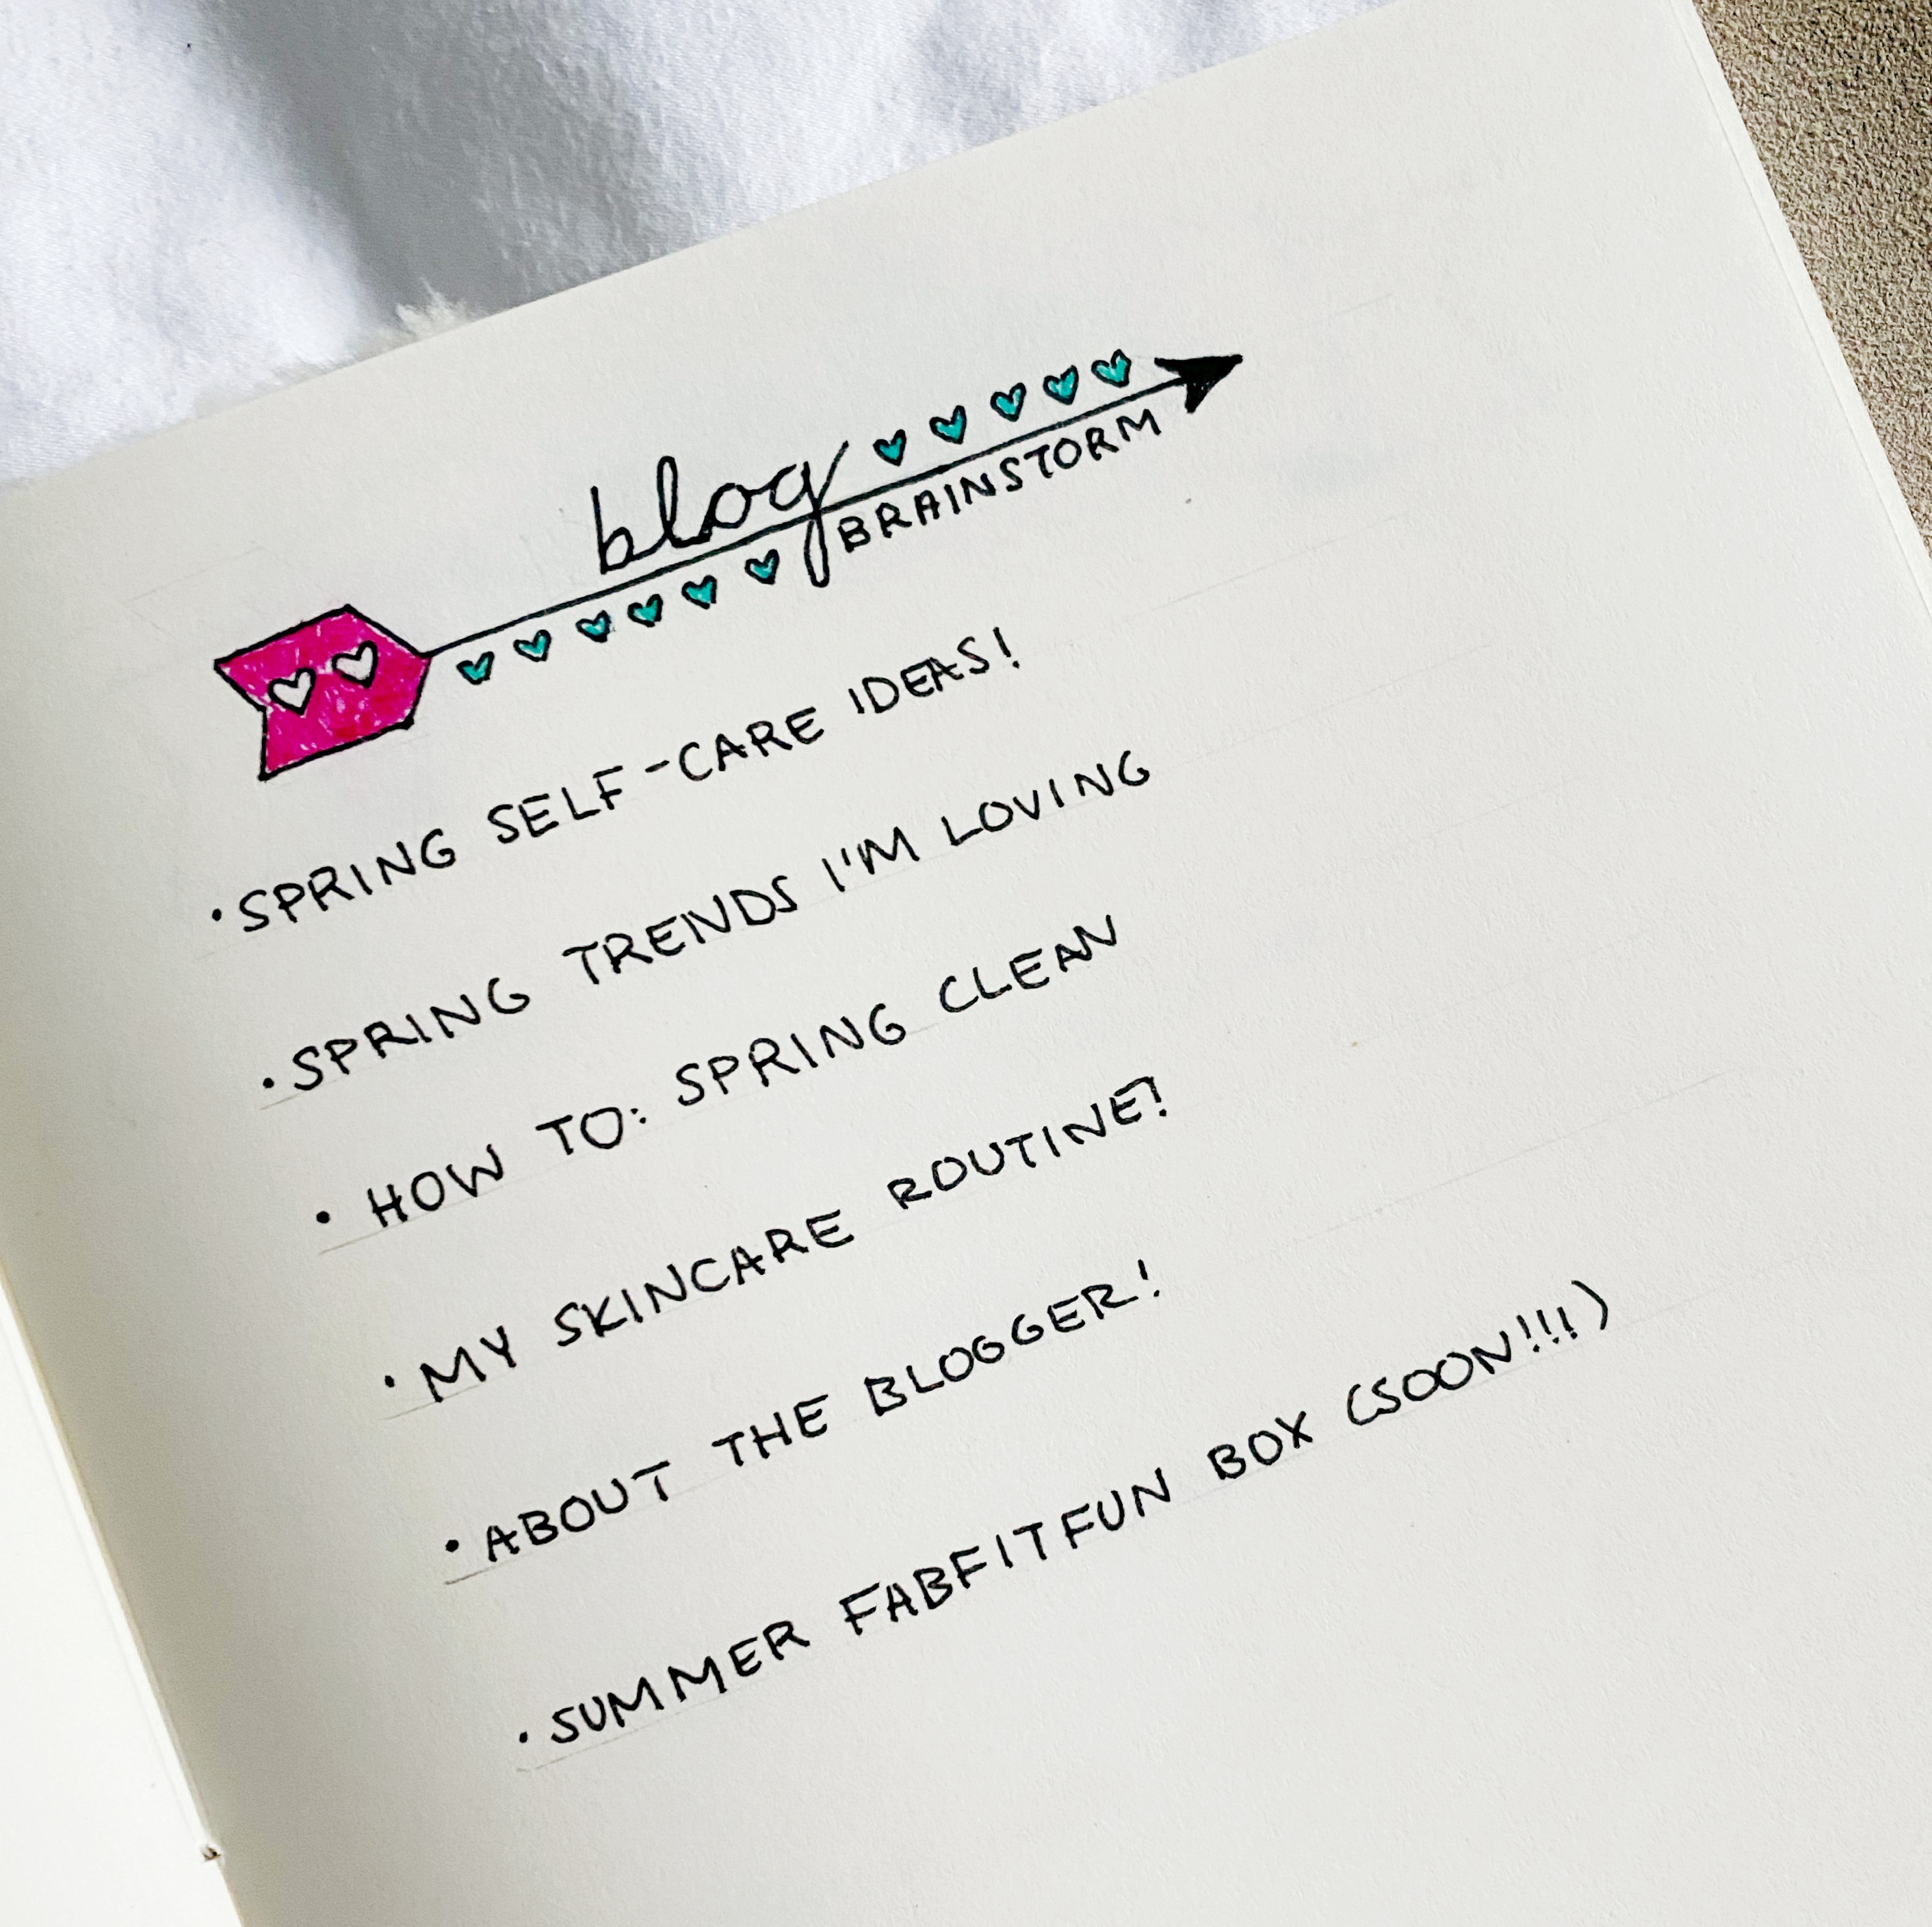 blog
BRAINSTORM
• SPRING SELF-CARE IDEAS!
• SPRING TRENDS I'M LOVING
• HOW TO: SPRING CLEAN
• MY SKINCARE ROUTINE?
• ABOUT THE BLOGGER!
• SUMMER FABFITFUN BOX (SOON!!!)